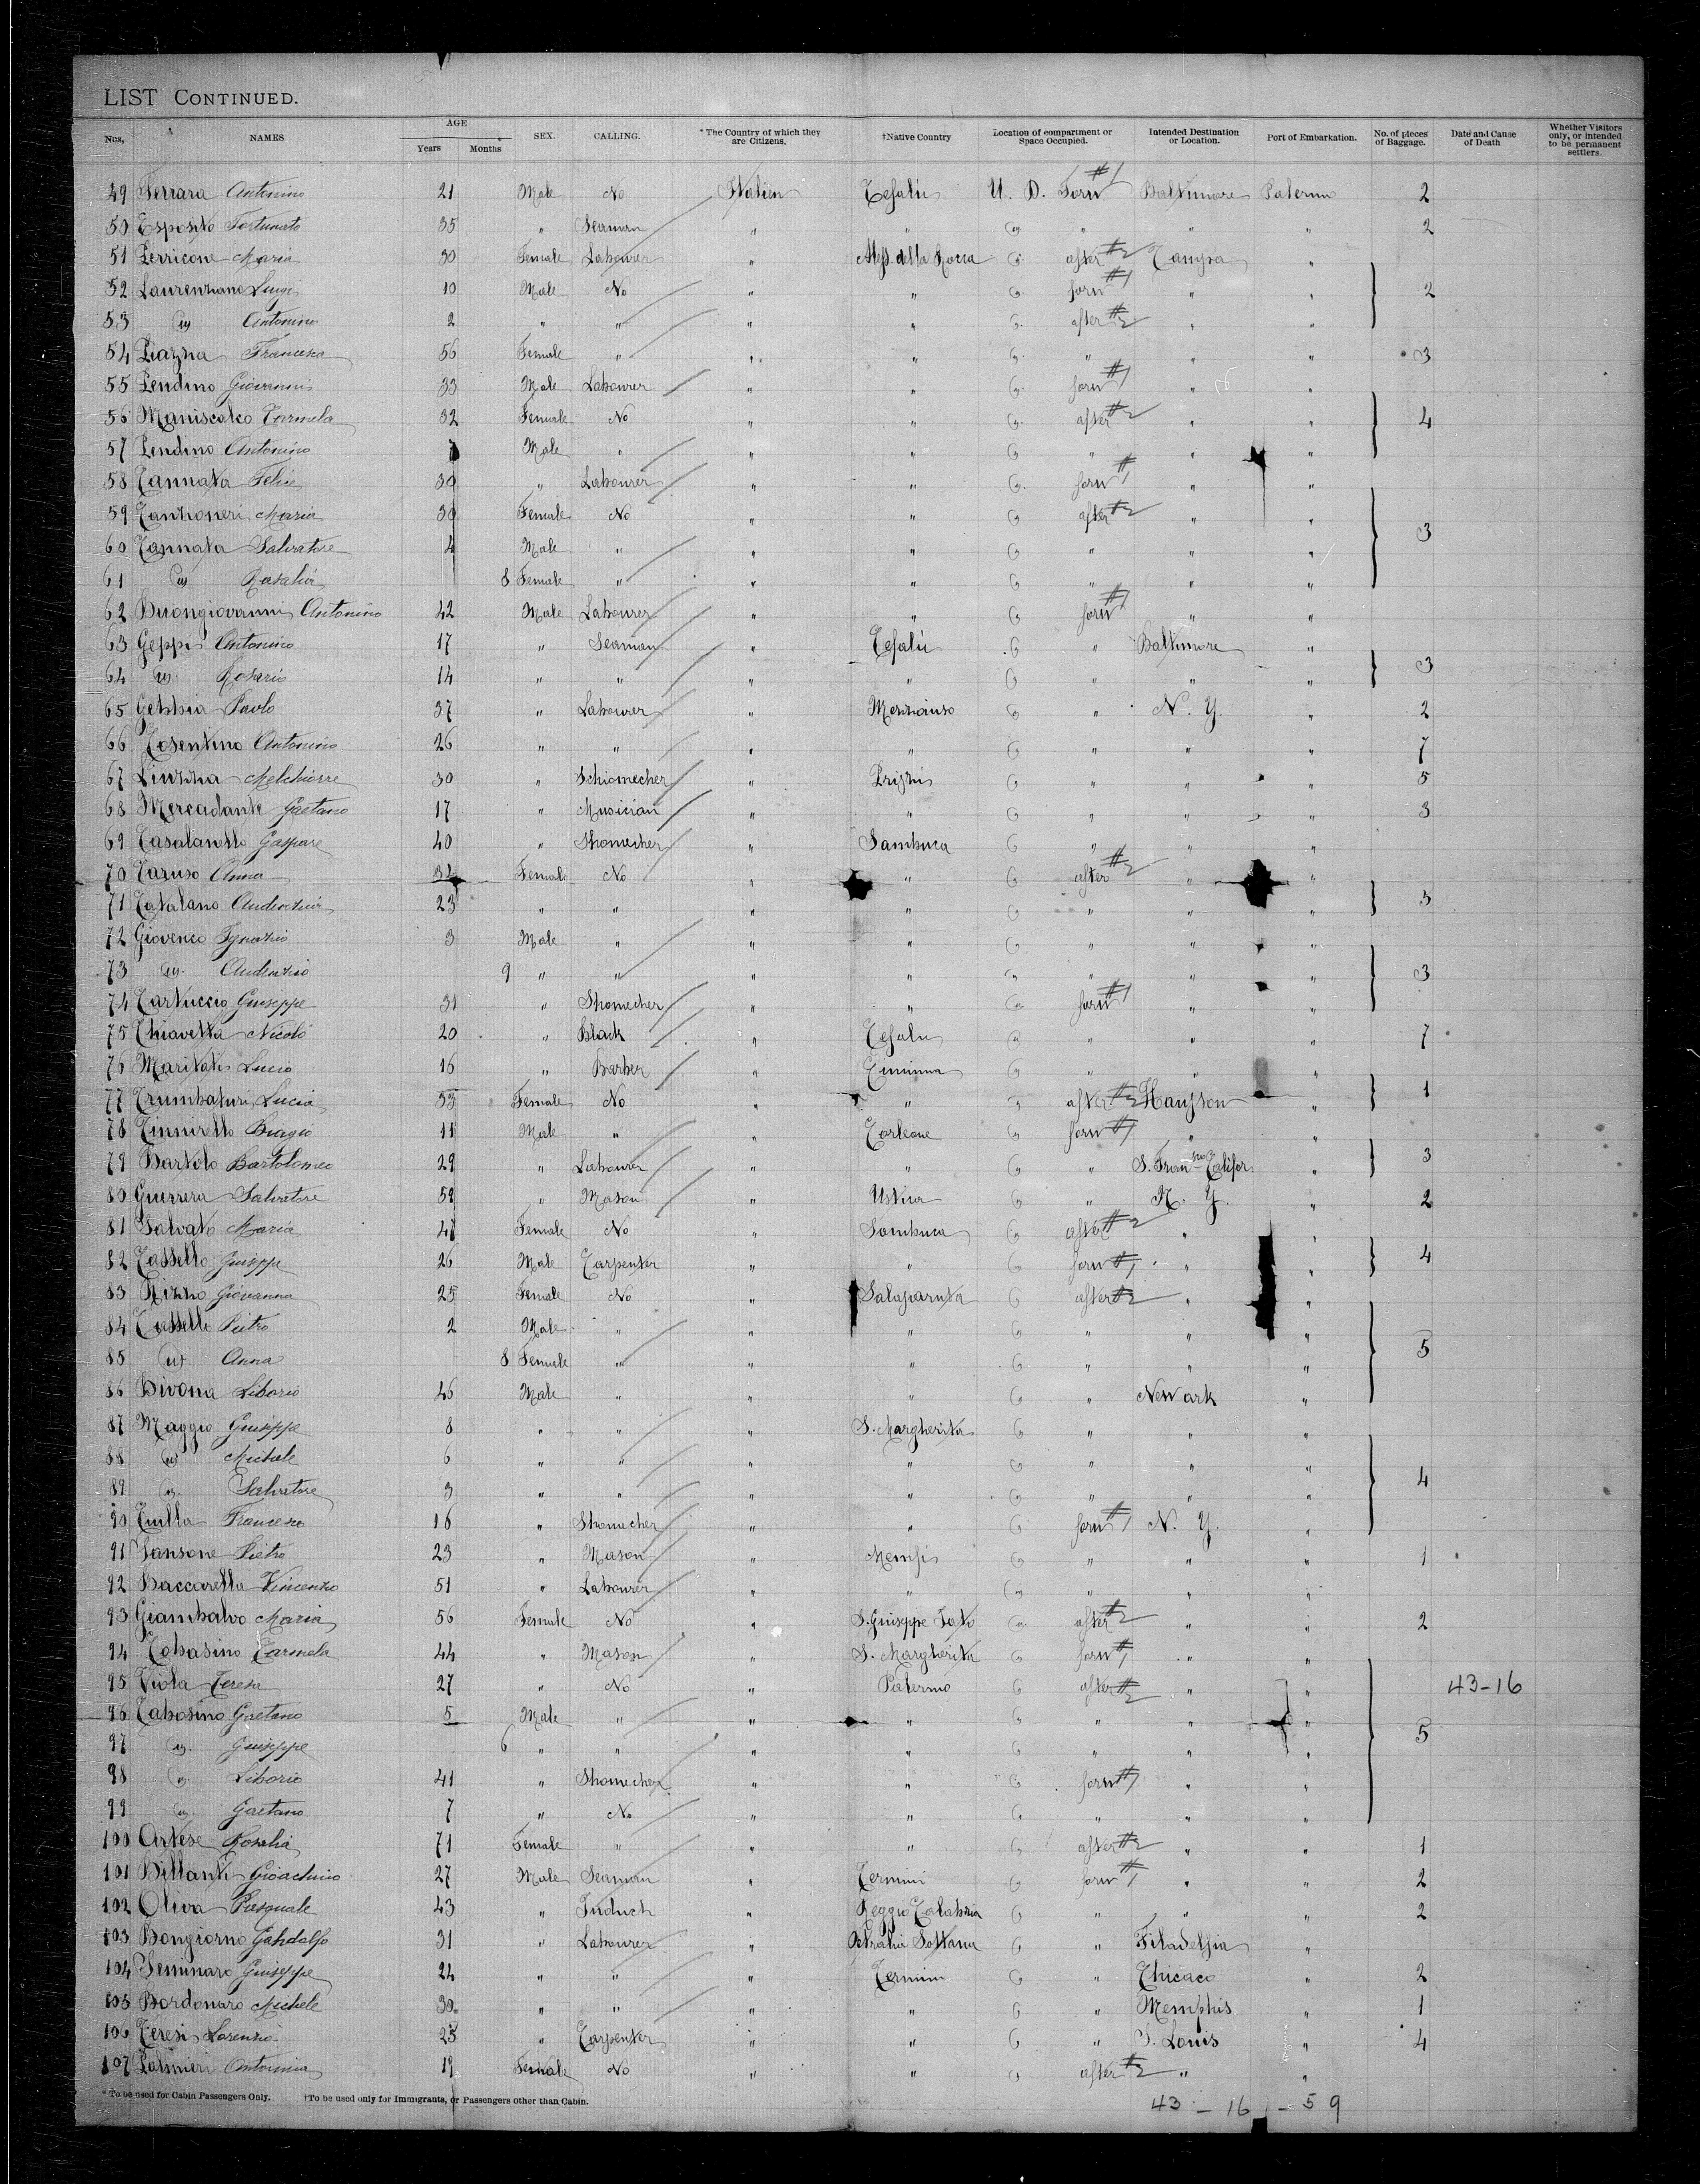 LIST CONTINUED.
Nos. NAMES AGE Years Months SEX. CALLING. * The Country of which they are Citizens. †Native Country Location of compartment or Space Occupied. Intended Destination or Location. Port of Embarkation. No. of pieces of Baggage. Date and Cause of Death Whether Visitors only, or intended to be permanent settlers.
49 Ferrara Antonino 21 Male No Italien Cefalù U. D. Forw #1 Baltimore Palermo 2
50 Esposito Fortunato 35 " Seaman " " " " " 2
51 Perricone Maria 30 Female Labourer " Aless. della Rocca after #2 Tampa "
52 Laurenzano Luigi 10 Male No " " forw #1 " " 2
53 Antonino 2 " " " " after #2 " "
54 Piazza Francesca 56 Female " " " " " " 3
55 Pendino Giovanni 33 Male Labourer " " forw #1 " "
56 Maniscalco Carmela 32 Female No " " after #2 " " 4
57 Pendino Antonino Male " " " " " "
58 Cannata Felice 30 " Labourer " " forw #1 " "
59 Canzoneri Maria 30 Female No " " after #2 " " 3
60 Cannata Salvatore 4 Male " " " " " "
61 Rosalia 8 Female " " " " " "
62 Buongiovanni Antonino 42 Male Labourer " " forw #1 " "
63 Geppi Antonino 17 " Seaman " Cefalù " Baltimore "
64 Rosario 14 " " " " " " " 3
65 Gebbia Paolo 37 " Labourer " " N. Y. " 2
66 Cosentino Antonino 26 " " " " " " " 7
67 Melchiorre 30 " Schiomecher " Prizzi " " " 5
68 Mercadante Gaetano 17 " Musician " " " " " 3
69 Casalanello Gaspare 40 " Shomecher " Sambuca " " "
70 Caruso Anna Female No " " after #2 " "
71 Catalano Audenzia 23 " " " " " " " 3
72 Giovenco Ignazio 3 Male " " " " " "
73 Audenzio 9 " " " " " " " 3
74 Cartuccio Giuseppe 31 " Shomecher " " forw #1 " "
75 Chiavetta Nicolò 20 " Black " Cefalu " " " 7
76 Maritati Lucio 16 " Barber " Ciminna " " "
77 Trumbaturi Lucia 33 Female No " " after #2 " 1
78 Cinnirello Biagio 11 Male " " Corleone forw #1 " "
79 Bartolo Bartolomeo 29 " Labourer " " " S. Fran Califor " 3
80 Guerrera Salvatore 59 " Mason " Ustica " N. Y. " 2
81 Salvato Maria 41 Female No " Sambuca after #2 " "
82 Cassello Giuseppe 26 Male Carpenter " " forw #1 " " 4
83 Rizzo Giovanna 25 Female No " Salaparuta after #2 " "
84 Cassello Pietro 2 Male " " " " " "
85 Anna 8 Female " " " " " " 5
86 Bivona Liborio 46 Male " " " " Newark "
87 Maggio Giuseppe 8 " " " S. Margherita " " "
88 Michele 6 " " " " " " "
89 Salvatore 3 " " " " " " " 4
90 Ciulla Francesco 16 " Shomecher " " forw #1 N. Y. "
91 Sansone Pietro 23 " Mason " Memfi " " " 1
92 Baccarella Vincenzo 51 " Labourer " " " " "
93 Giambalvo Maria 56 Female No " S. Giuseppe Jato after #2 " " 2
94 Cobasino Carmela 44 " Mason " S. Margherita forw #1 " "
95 Viola Teresa 27 " No " Palermo after #2 " " 43-16
96 Cabosino Gaetano 5 Male " " " " " "
97 Giuseppe 6 " " " " " " " 5
98 Liborio 41 " Shomecher " " forw #1 " "
99 Gaetano 7 " No " " " " "
100 Artese Rosalia 71 Female " " " after #2 " " 1
101 Billanti Gioachino 27 Male Seaman " Termini forw #1 " " 2
102 Oliva Pasquale 43 " " Reggio Calabria " " " 2
103 Bongiorno Gandalfo 31 " Labourer " Petralia Sottana " Filadelfia "
104 Seminaro Giuseppe 24 " " " Termini " Chicaco " 2
105 Bordonaro Michele 30 " " " " " Memphis " 1
106 Teresi Lorenzo 25 " Carpenter " " " S. Louis " 4
107 Palmieri Antonina 19 Female No " " after #2 " "
* To be used for Cabin Passengers Only. †To be used only for Immigrants, or Passengers other than Cabin.
43 - 16 - 59